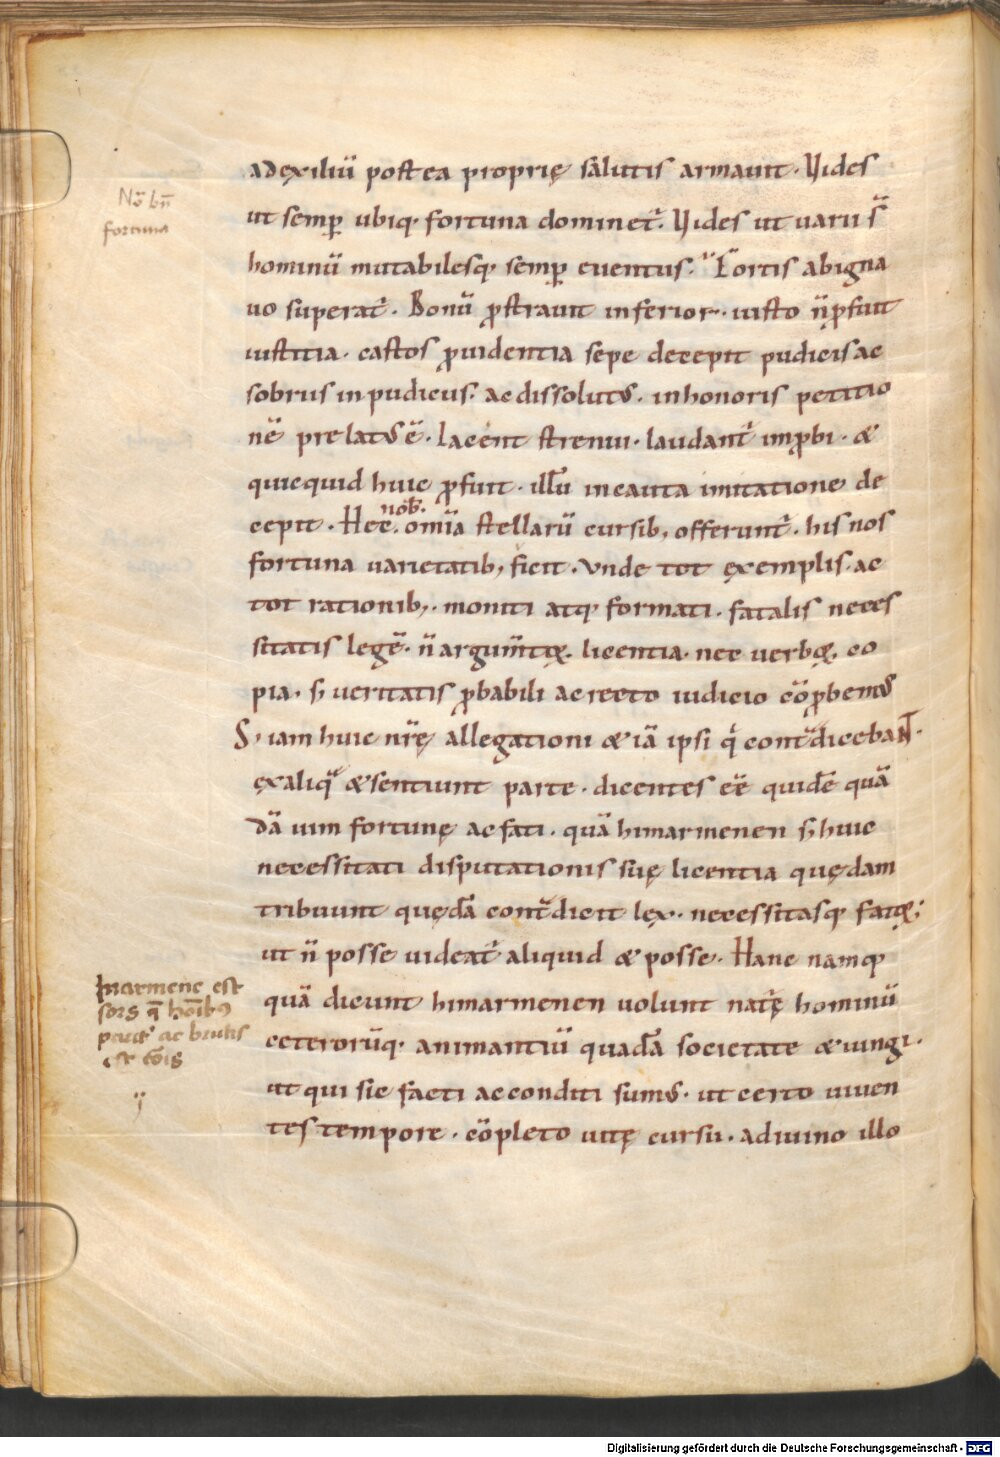 adexiliū postea proprię salutis armauit. Vides
Nō bn̄
fortuna
ut semp̄ ubiq; fortuna dominet̄. Vides ut uarii s̄
hominū mutabilesq; semp̄ euentus. Fortis abigna
uo superat̄. Bonū p̄strauit inferior. iusto n̄ p̄fuit
iustitia. castos p̄uidentia sepe decepit pudicis ac
sobriis inpudicus. ac dissolutus. inhonoris petitio
nē prelatus ē. Iacent strenui. laudant̄ inp̄bi. &
quicquid huic p̄fuit. illū incauta imitatione de
cepit. Hec nob̄. omīa stellarū cursib; offerunt̄. his nos
fortuna uarietatib; ficit. Vnde tot ęxemplis. ac
tot rationib;. moniti atq; formati. fatalis neces
sitatis legē. n̄ argum̄toꝝ. licentia. nec uerboꝝ. co
pia. s; ueritatis p̄babili ac recto iudicio cōp̄bemus
S; iam huic nr̄ę allegationi & iā ipsi q̄ cont̄dicebaNT.
ęxaliq̄ &sentiunt parte. dicentes eē quidē quā
dā uim fortunę ac fati. quā himarmenen s; huic
necessitati disputationis suę licentia quędam
tribuunt quędā cont̄dicit lęx. necessitasq; fatoꝝ;
ut n̄ posse uideat̄ aliquid & posse. Hanc namq;
quā dicunt himarmenen uolunt nat̄ę hominū
Inarmene est
sors q̄ hōibꝰ
pariť ac brutis
est cōis
ceterorūq; animantiū quadā societate & iungi.
ut qui sic facti ac conditi sumus. ut certo uiuen
tes tempore. cōpleto uitę cursu. adiuino illo
Digitalisierung gefördert durch die Deutsche Forschungsgemeinschaft - DFG